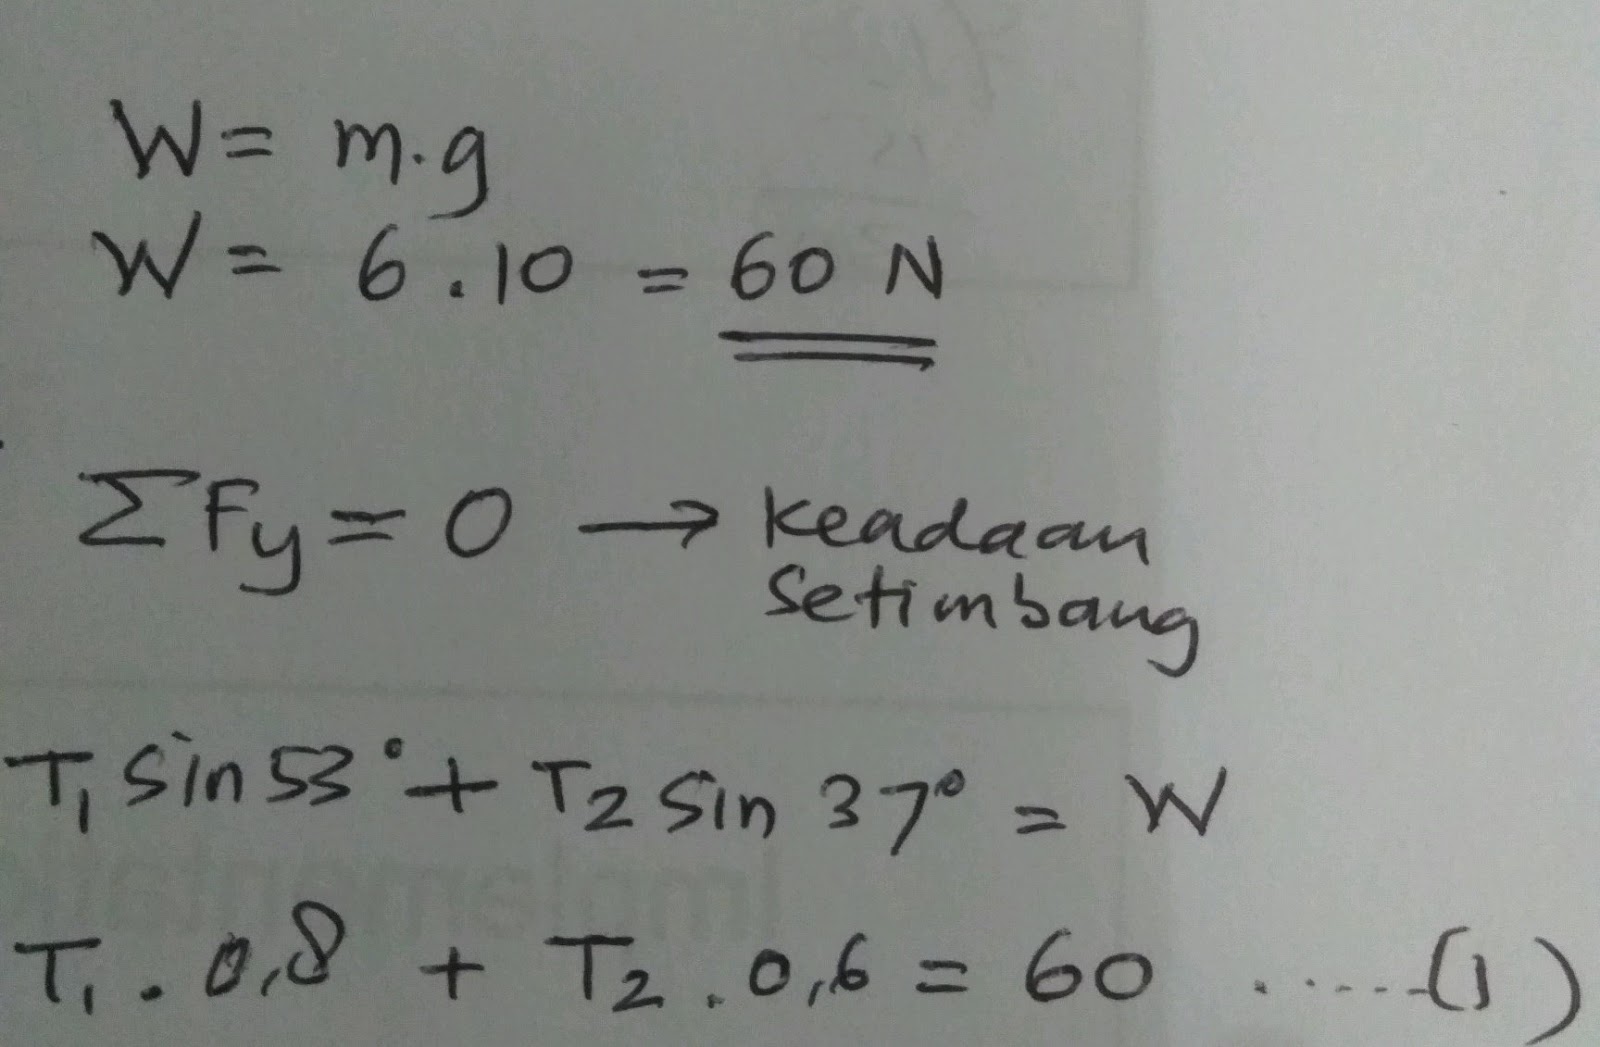 W = m.g
W = 6.10 = 60 N
ΣFy = 0 → Keadaan
Setimbang
T₁ sin 53° + T₂ sin 37° = W
T₁ . 0,8 + T₂ . 0,6 = 60 ......(1)